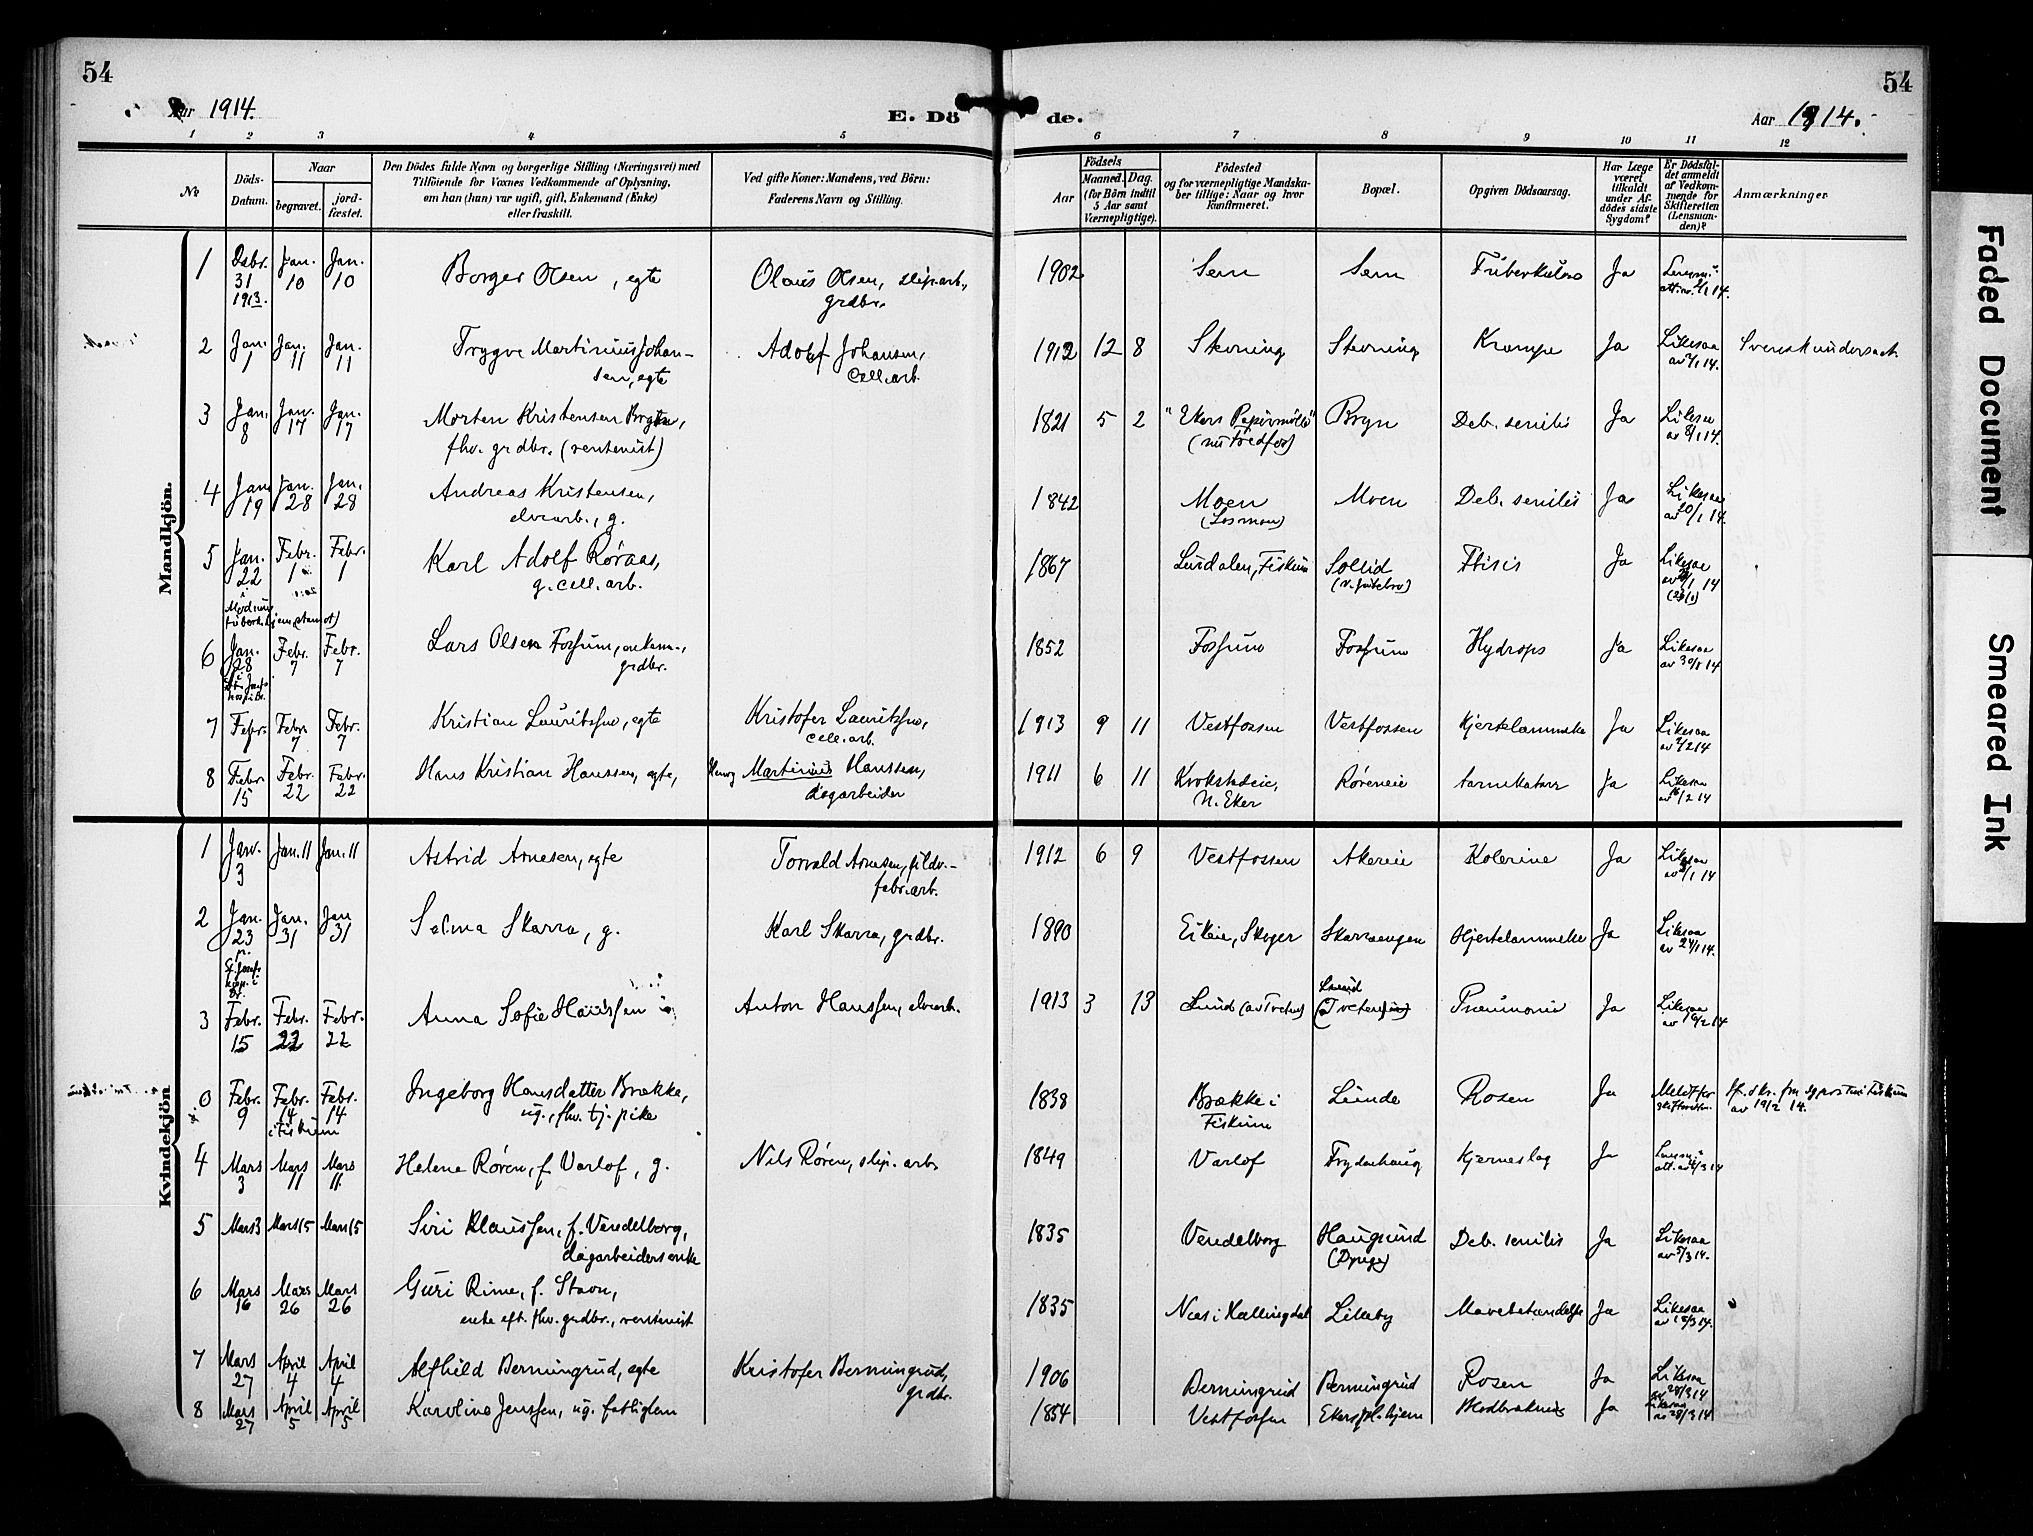 54
54
Aar 1914.
E. Döde.
Aar 1914.
1 2 3 4 5 6 7 8 9 10 11 12
No
Döds-Datum.
Naar
begravet.
jord-fæstet.
Den Dödes fulde Navn og borgerlige Stilling (Næringsvei) med
Tilföiende for Voxnes Vedkommende af Oplysning,
om han (hun) var ugift, gift, Enkemand (Enke)
eller fraskilt.
Ved gifte Koner: Mandens, ved Börn:
Faderens Navn og Stilling.
Aar
Födsels
Maaned. Dag.
(for Börn indtil
5 Aar samt
Værnepligtige).
Födested
og for værnepligtige Mandska-
ber tillige: Naar og hvor
konfirmeret.
Bopæl.
Opgiven Dödsaarsag.
Har Læge
været
tilkaldt
under Af-
dödes sidste
Sygdom?
Er Dödsfal-
det anmeldt
af Vedkom-
mende for
Skifteretten
(Lensman-
den)?
Anmærkninger
Mandkjön.
1 Dsbr. 31 1913. Jan. 10 Jan. 10 Borger Olsen, egte Olaus Olsen, slip.arb., grdbr. 1902 Sem Sem Tuberkulos Ja
2 Jan. 1 Jan. 11 Jan. 11 Trygve Martinius Johansen, egte Adolf Johansen, cell.arb. 1912 12 8 Skovning Skovning Krampe Ja Likesaa av 2/1 14.
3 Jan. 8 Jan. 17 Jan. 17 Morten Kristensen Bryn, fhv. grdbr. (rentenist) 1821 5 2 "Ekers Papirmölle" (nu Fredfos) Bryn Deb. senilis Ja Likesaa av 8/1 14.
4 Jan. 19 Jan. 28 Jan. 28 Andreas Kristensen, elvearb., g. 1842 Moen (Losmoen) Moen Deb. senilis Ja Likesaa av 20/1 14.
5 Jan. 22 Febr. 1 Febr. 1 Karl Adolf Røraas, g. cell. arb. 1867 Lurdalen, Fiskum Sollid Ftisis Ja Likesaa
6 Jan. 28 Febr. 7 Febr. 7 Lars Olsen Fossum, enkem., grdbr. 1852 Fossum Fossum Hydrops Ja Likesaa av 30/1 14
7 Febr. Febr. 7 Febr. 7 Kristian Lauritzsen, egte Kristofer Lauritzsen, cell.arb. 1913 9 11 Vestfossen Vestfossen Hjertelammelse Ja Likesaa av 2/2 14
8 Febr. 15 Febr. 22 Febr. 22 Hans Kristian Hanssen, egte, Martinius Hanssen, dagarbeider 1911 6 11 Krokstadeie, N. Eker Røreneie tarmkatarr Ja Likesaa av 16/2 14
Kvindekjön
1 Jan. 3 Jan. 11 Jan. 11 Astrid Arnesen, egte Torvald Arnesen, fabr.arb. 1912 6 9 Vestfossen Akereie Kolerine Ja Likesaa
2 Jan. 23 Jan. 31 Jan 31 Selma Skarra, g. Karl Skarra, grdbr. 1890 Eikeie, Skoger Skarraengen Hjertelammelse Ja Likesaa av 24/1 14.
3 Febr. 15 Febr. 22 Febr. 22 Anna Sofie Hanssen Anton Hanssen, elvearb. 1913 3 13 Lund (av Tveten) Lund Pneumonie Ja Likesaa av 16/2 14
0 Febr. 9 Febr. 14 i Fiskum Febr. 14 Ingeborg Hansdatter Brække, ug., fhv. tj. pike 1838 Brække i Fiskum Lunde Rosen Ja
4 Mars 3 Mars 11 Mars 11 Helene Røren, f. Varlof, g. Nils Røren, slip. arb. 1849 Varlof Frydenhaug Hjerneslag Ja
5 Mars 3 Mars 15 Mars 15 Siri Klaussen, f. Vendelborg, dagarbeiders enke 1835 Vendelborg Haugsund Deb. senilis Ja Likesaa av 5/3 14.
6 Mars 16 Mars 26 Mars 26 Guri Rime, f. Stavn, enke eft. fhv. grdbr., rentenist 1835 Næs i Hallingdal Lilleby Mavebetændelse Ja Likesaa av 18/3 14.
7 Mars 27 April 4 April 4 Alfhild Berningrud, egte Kristofer Berningrud, grdbr. 1906 Berningrud Berningrud Rosen Ja Likesaa av 28/3 14
8 Mars 27 April 5 April 5 Karoline Jenssen, ug. fattiglem 1854 Vestfossen Ekers pl.hjem Blodbræknis Ja Likesaa av 28/3 14
Faded Document
Smeared Ink